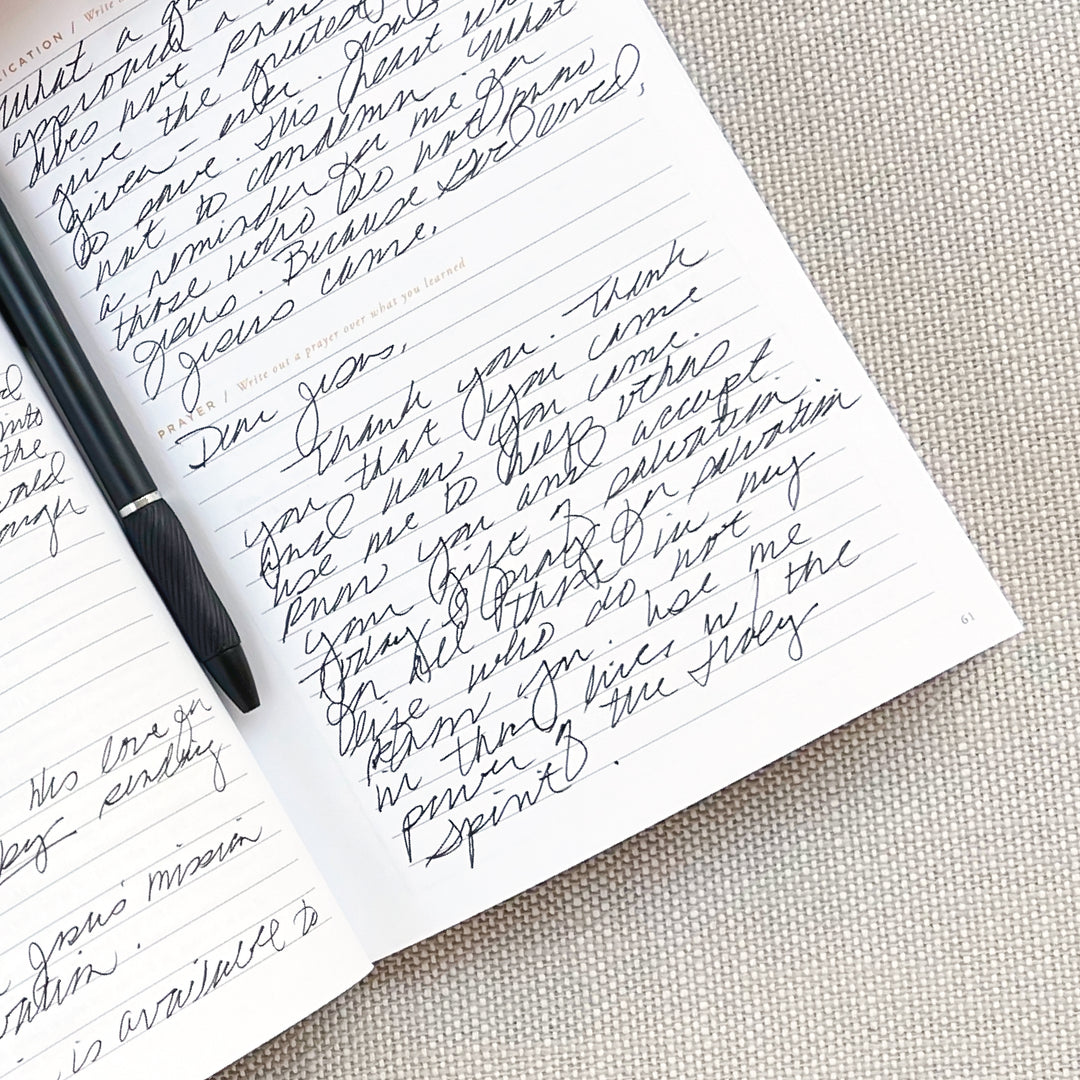 d
into
the
world
through
His love for
by sending
Jesus' mission
is available to
LICATION / Write
What a
approach a
does not
give the greatest
given - ever. Jesus
to save. His heart was
not to condemn. What
a reminder for me for
those who do not know
Jesus. Because God loved,
Jesus came.
PRAYER / Write out a prayer over what you learned
Dear Jesus,
Thank you. Thank
you that you came
and how you came.
Use me to help others
know you and accept
your gift of salvation.
Today I pray for salvation
for all those in my
life who do not
know you. Use me
in their lives w/ the
power of the Holy
Spirit.
61